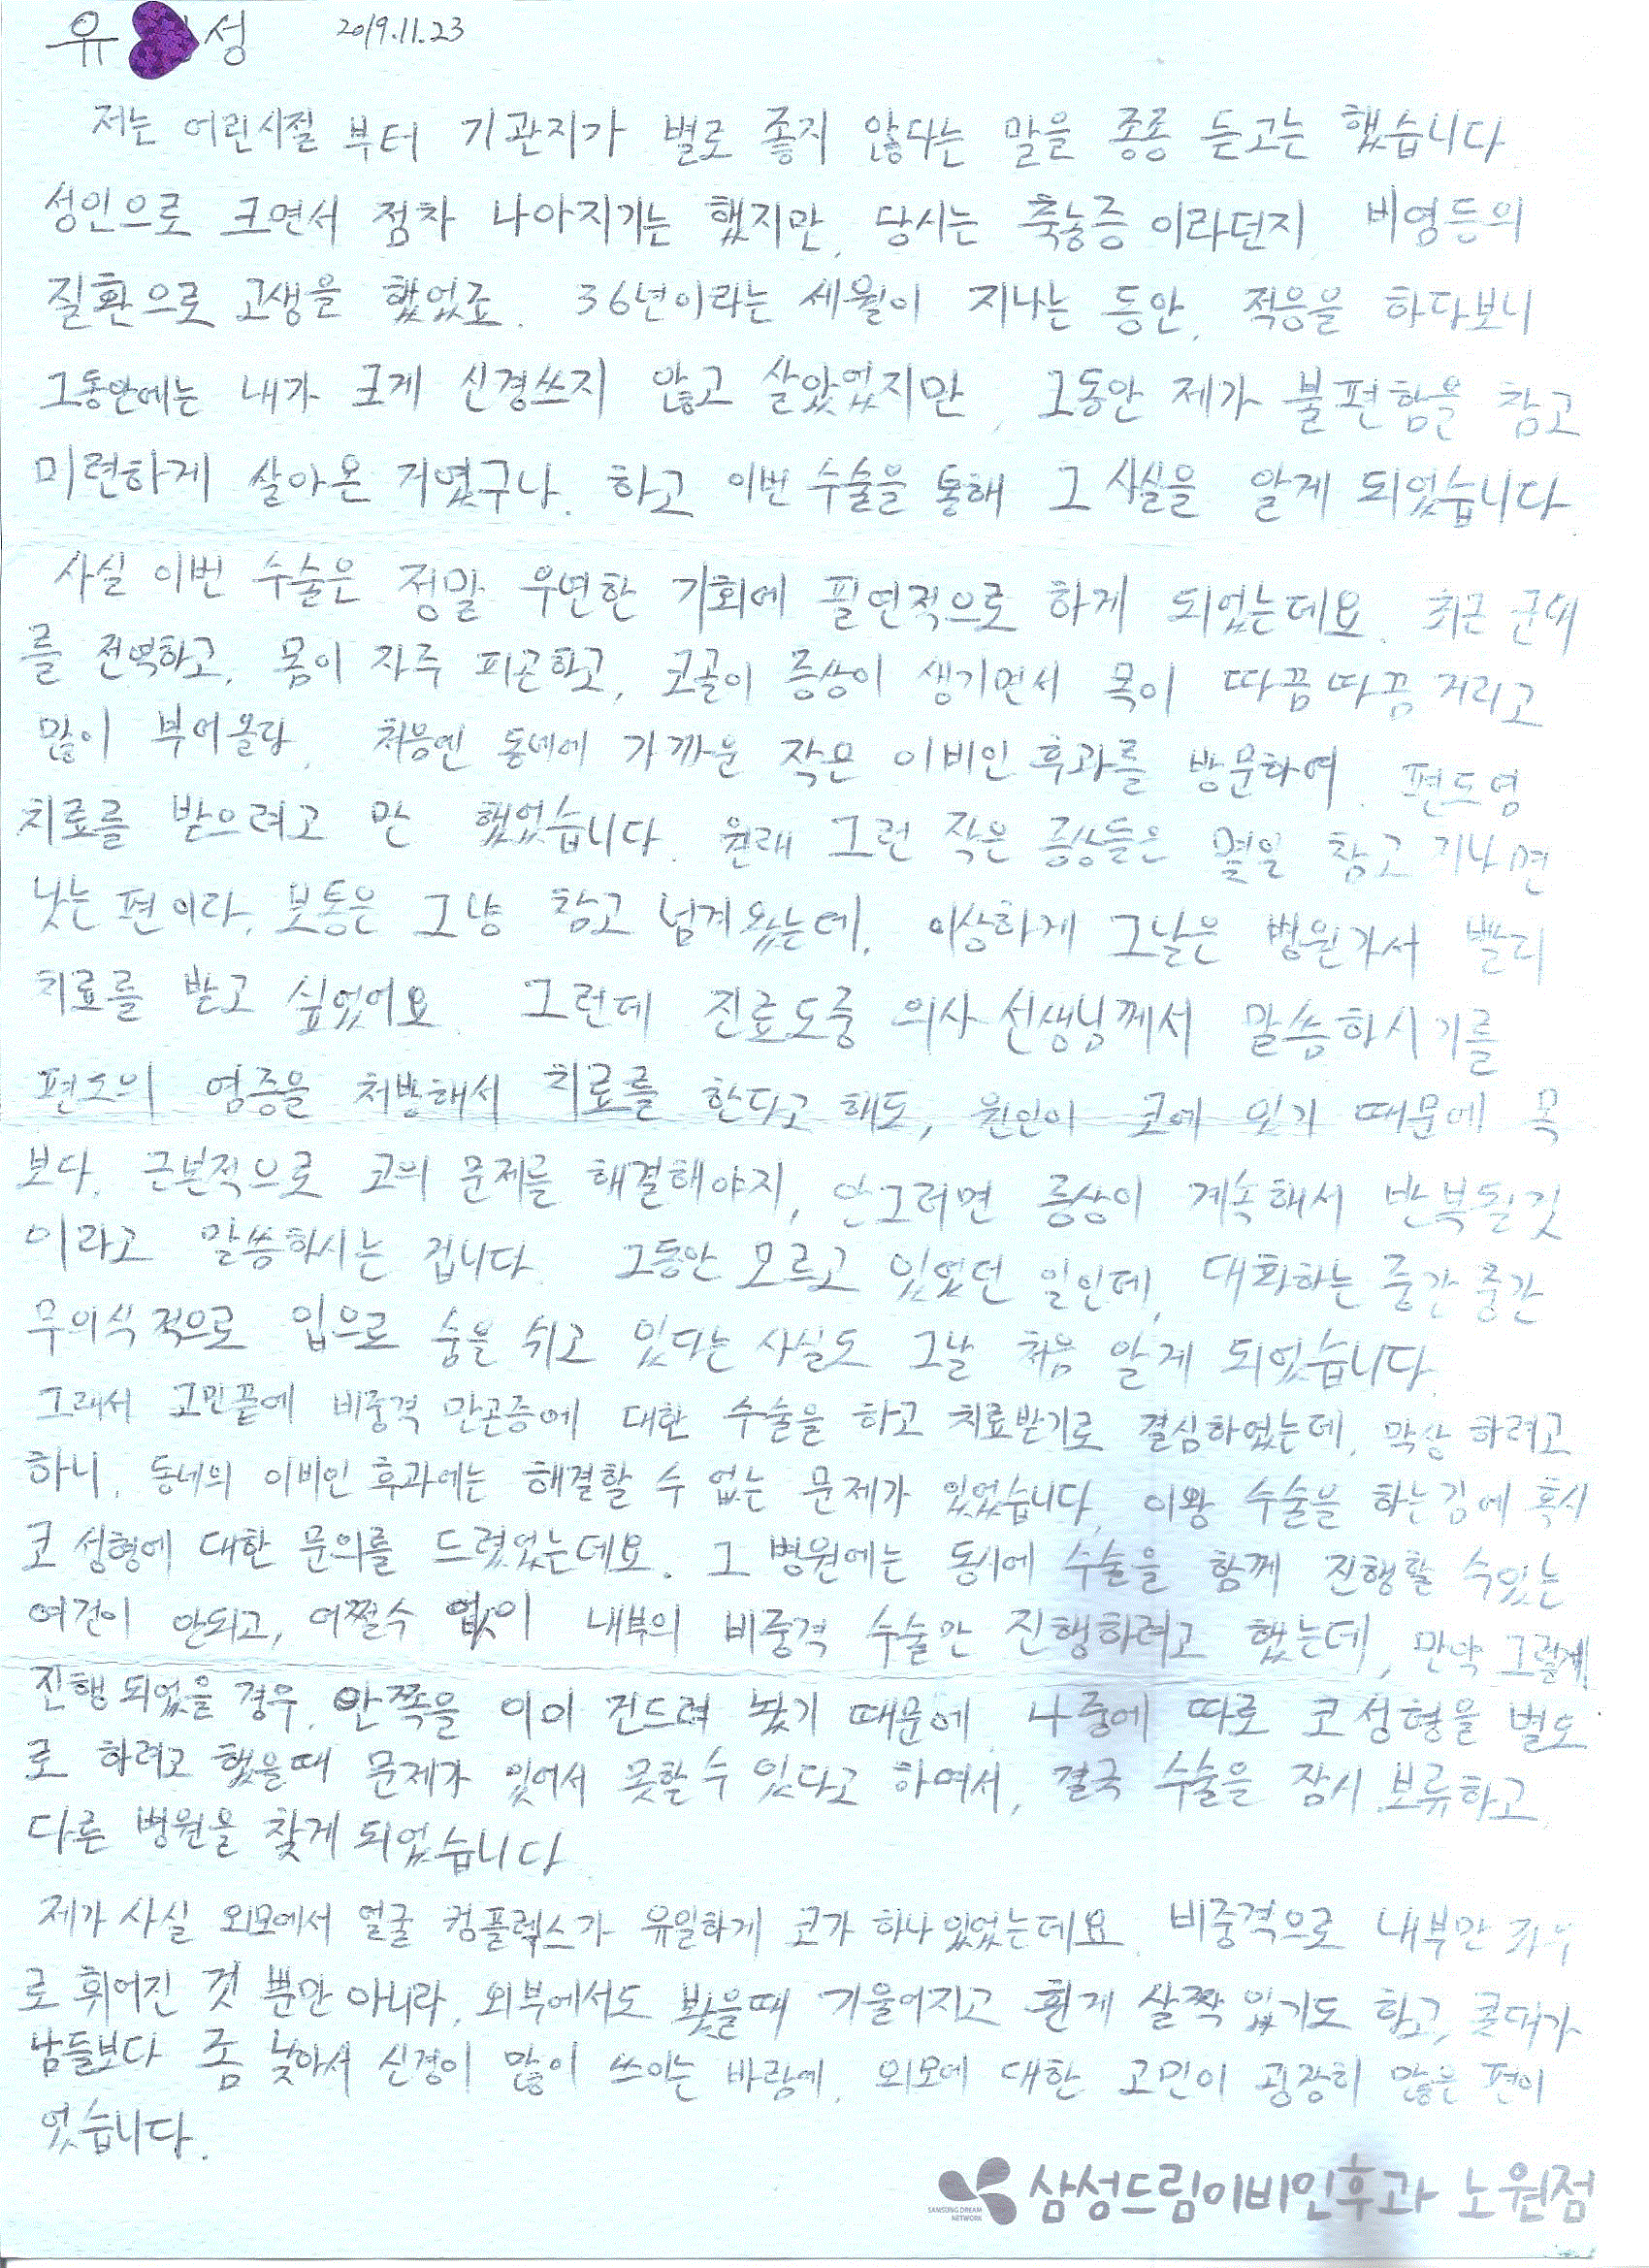 유 성 2019.11.23
저는 어린시절 부터 기관지가 별로 좋지 않다는 말을 종종 듣고는 했습니다
성인으로 크면서 점차 나아지기는 했지만, 당시는 축농증이라던지 비염등의
질환으로 고생을 했었죠. 36년이라는 세월이 지나는 동안, 적응을 하다보니
그동안에는 내가 크게 신경쓰지 않고 살았었지만, 그동안 제가 불편함을 참고
미련하게 살아온 거였구나. 하고 이번 수술을 통해 그 사실을 알게 되었습니다.
사실 이번 수술은 정말 우연한 기회에 필연적으로 하게 되었는데요. 최근 군대
를 전역하고, 몸이 자주 피곤하고, 코골이 증상이 생기면서 목이 따끔따끔 거리고
많이 부어올라, 처음엔 동네에 가까운 작은 이비인후과를 방문하여, 편도염
치료를 받으려고 만 했었습니다. 원래 그런 작은 증상들은 몇일 참고 지나면
낫는 편이라, 보통은 그냥 참고 넘겨왔는데, 이상하게 그날은 병원가서 빨리
치료를 받고 싶었어요. 그런데 진료도중 의사 선생님께서 말씀하시기를
편도의 염증을 처방해서 치료를 한다고 해도, 원인이 코에 있기 때문에 목
보다, 근본적으로 코의 문제를 해결해야지, 안그러면 증상이 계속해서 반복될것
이라고 말씀하시는 겁니다. 그동안 모르고 있었던 일인데, 대화하는 중간 중간
무의식적으로 입으로 숨을 쉬고 있다는 사실도 그날 처음 알게 되었습니다.
그래서 고민끝에 비중격 만곡증에 대한 수술을 하고 치료받기로 결심하였는데, 막상 하려고
하니, 동네의 이비인후과에는 해결할 수 없는 문제가 있었습니다, 이왕 수술을 하는김에 혹시
코 성형에 대한 문의를 드렸었는데요. 그 병원에는 동시에 수술을 함께 진행할 수있는
여건이 안되고, 어쩔수 없이 내부의 비중격 수술만 진행하려고 했는데, 만약 그렇게
진행 되었을 경우, 안쪽을 이미 건드려 놨기 때문에, 나중에 따로 코 성형을 별도
로 하려고 했을때 문제가 있어서 못할수 있다고 하여서, 결국 수술을 잠시 보류하고
다른 병원을 찾게 되었습니다.
제가 사실 외모에서 얼굴 컴플렉스가 유일하게 코가 하나 있었는데요. 비중격으로 내부만 좌우
로 휘어진 것 뿐만 아니라, 외부에서도 봤을때 기울어지고 휜게 살짝 있기도 하고, 콧대가
남들보다 좀 낮아서 신경이 많이 쓰이는 바람에, 외모에 대한 고민이 굉장히 많은 편이
었습니다.
SAMSUNG DREAM NETWORK 삼성드림이비인후과 노원점